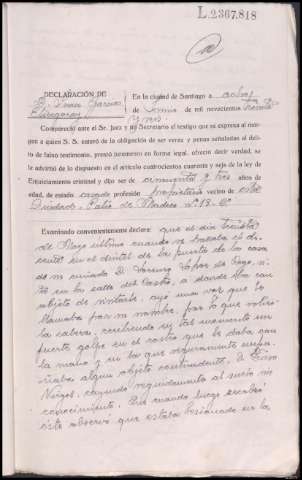 L.2367.818
DECLARACIÓN DE
D. Juan García
En la ciudad de Santiago a ocho
de Junio de mil novecientos treinta
y tres.
Compareció ante el Sr. Juez y mi Secretario el testigo que se expresa al margen
a quien S. S. enteró de la obligación de ser veraz y penas señaladas al delito
de falso testimonio, prestó juramento en forma legal, ofreció decir verdad, se
le advertió de lo dispuesto en el artículo cuatrocientos cuarenta y seis de la ley de
Enjuiciamiento criminal y dijo ser de cincuenta y tres años de
edad, de estado casado profesión propietario vecino de esta
Ciudad. Calle de nº 13-6º
Examinado convenientemente declara: que el día treinta
de Mayo último cuando se hallaba el de-
en el dintel de la puerta de la casa
de su cuñado D. López de
en la calle del Castro, a donde iba con
objeto de visitarle, oyó una voz que le
llamaba por su nombre, por lo que volvió
la cabeza, recibiendo en tal momento un
fuerte golpe en el rostro que le daba con
la mano y en la que seguramente
algún objeto contundente, D.
cayendo seguidamente al suelo sin
conocimiento. Que cuando luego recobró
éste observó que estaba lesionado en la